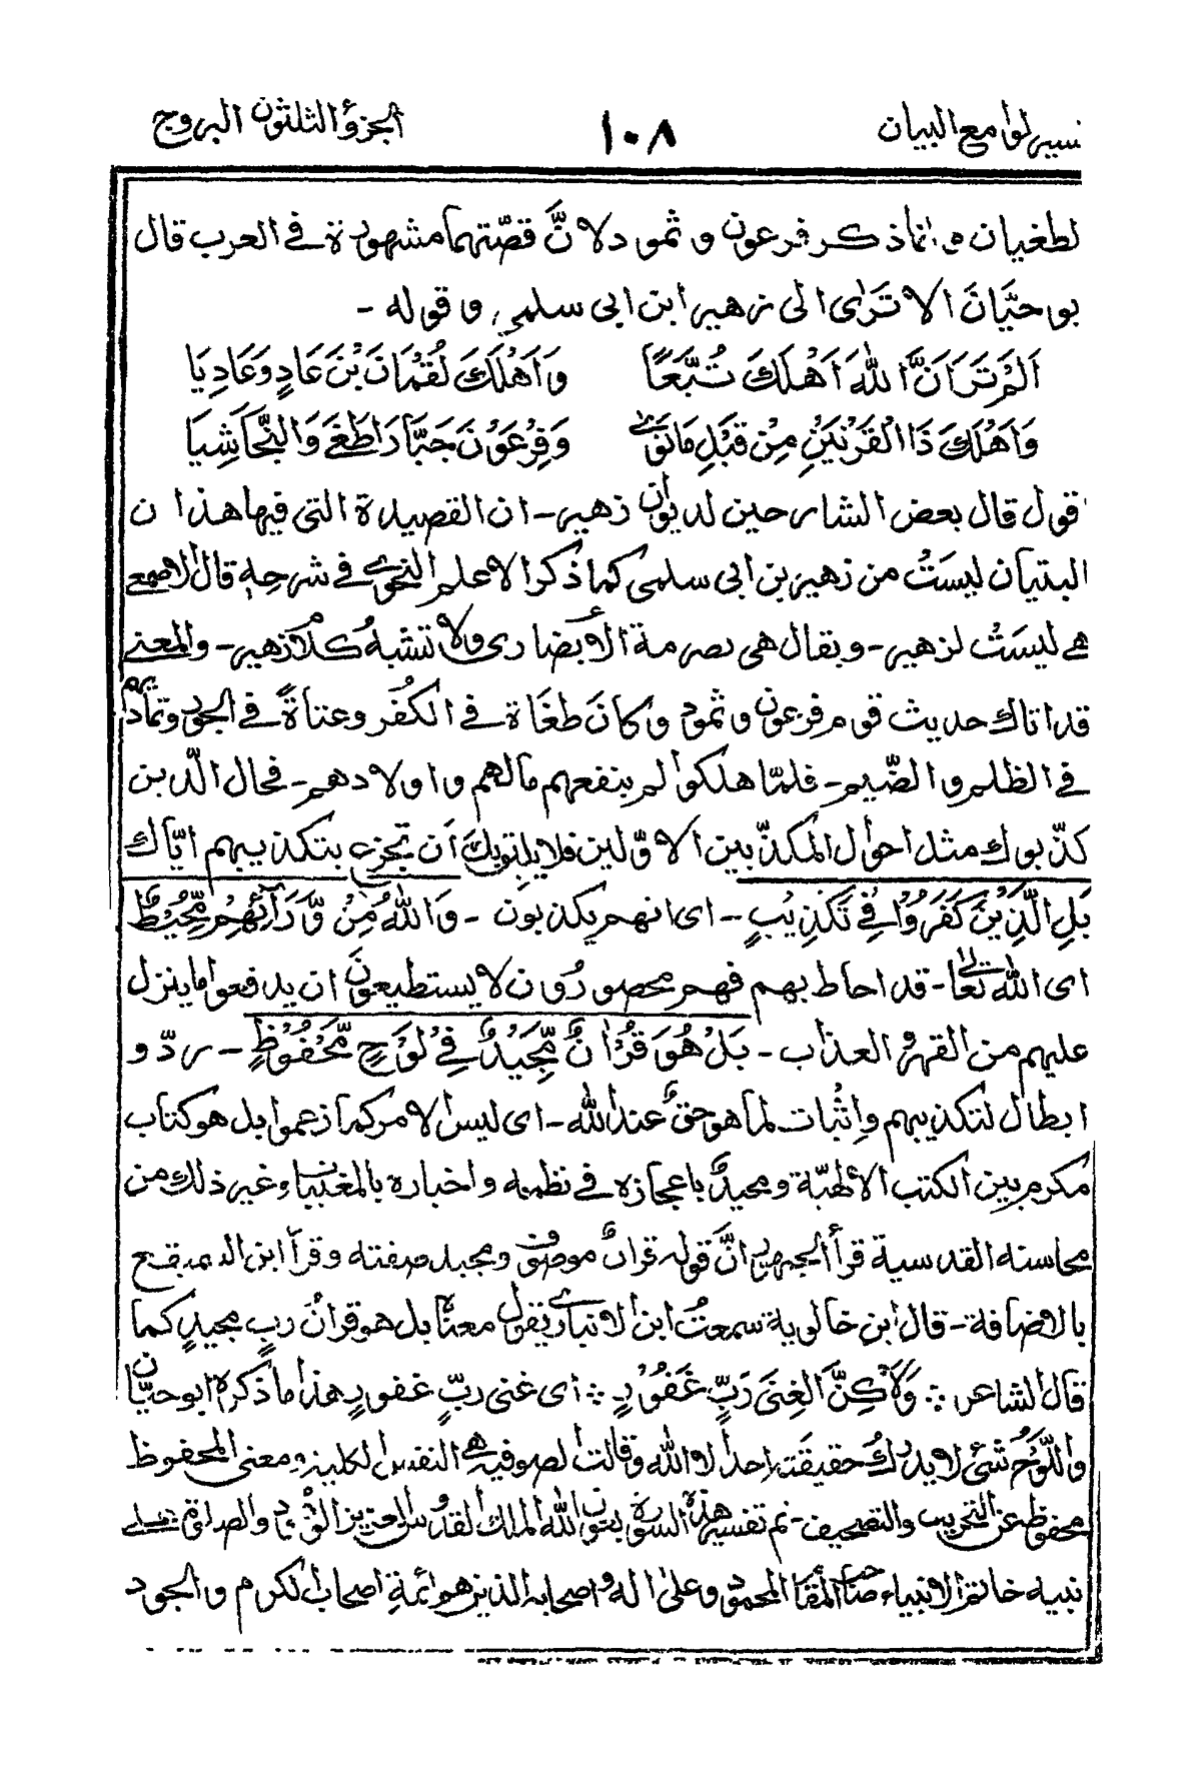 تفسير لوامع البيان ١٠٨ الجزؤ الثلثون البروج
لطغيان و انما ذكر فرعون و ثمود لانَّ قصّتهما مشهودة فى العرب قال
بو حيَّانَ الا تَرَاى الى زهير ابن ابى سلمى و قوله -
اَلَمْ تَرَ اَنَّ اللهَ اَهْلَكَ تُبَّعًا وَاَهْلَكَ لُقْمَانَ بْنَ عَادٍ وَعَادِيَا
وَاَهْلَكَ ذَا الْقَرْنَيْنِ مِنْ قَبْلِ مَا تَرٰى وَفِرْعَوْنَ جَبَّادًا طَغَى وَالنَّجَاشِيَا
اقول قال بعض الشارحين لديوان زهير - ان القصيدة التى فيها هذا ن
البتيان ليسَتْ من زهير بن ابى سلمى كما ذكر الاعلم النحوى فى شرحهٖ قال الاصمعى
هى ليسَتْ لزهير - و يقال هى بصرمة الأنضارى ولا تشبهُ كلامُ زهير - والمعنى
قد اتاك حديث قوم فرعون و ثمود و كانَ طغَاة فى الكُفْر و عتاةً فى الجحود و تماديهم
فى الظلم و الضَّيم - فلمّا هلكوا لم ينفعهم مالهم و اولادهم - فحال الّذين
كذّبوك مثل احوال المكذّبين الاوّلين فلا يلتوبكَ اَن تحزن بتكذيبهم ايّاك
بَلِ الَّذِيْنَ كَفَرُوْا فِىْ تَكْذِيْبٍ - اى انهم يكذبون - وَاللهُ مِنْ وَّرَآئِهِمْ مُّحِيْطٌ
اى الله تعالى - قد احاط بهم فهم محصورُون لا يستطيعون ان يدفعوا ما ينزل
عليهم من القهر و العذاب - بَلْ هُوَ قُرْاٰنٌ مَّجِيْدٌ فِىْ لَوْحٍ مَّحْفُوْظٍ - ردّ و
ابطال لتكذيبهم و اِثْبات لما هو حقٌّ عند الله - اى ليس الامر كما زعموا بل هو كتاب
مكرم بين الكتب الألهيّة و مجيدٌ باعجازه فى نظمه و اخباره بالمغيبات و غير ذلك من
محاسنه القدسية قرأ الجمهور انَّ قوله قرانٌ موصوف و مجيد صفته و قرأ ابن السميقع
بالاضافة - قال ابن خالوية سمعتُ ابن الانبارى يقول معناه بل هو قرانُ ربٍ مجيدٍ كما
قال الشاعر ؞ وَلاٰكِنَّ الْغِنَى رَبٍّ غَفُوْرٍ ؞ اى غنى ربٍّ غفورٍ هذا ما ذكره ابو حيّان
واللَّوْحُ شئ لا يدركُ حقيقتَه احد الا الله و قالت الصوفيه هى النفس الكليه و معنى المحفوظ
محفوظ عن التحريف و التصحيف - تم تفسير هذه السورة بعون الله الملك القدّوس العزيز الودود والصلوة على
نبيه خاتم الانبياء صاحب المقام المحمود و على اله و اصحابه الذين هم ائمة اصحاب الكرم و الجود